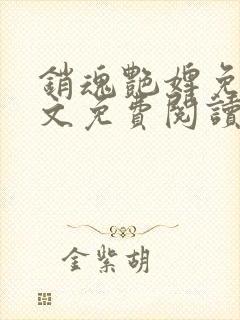 銷魂艷婢免
文免費閱讀
金紫胡